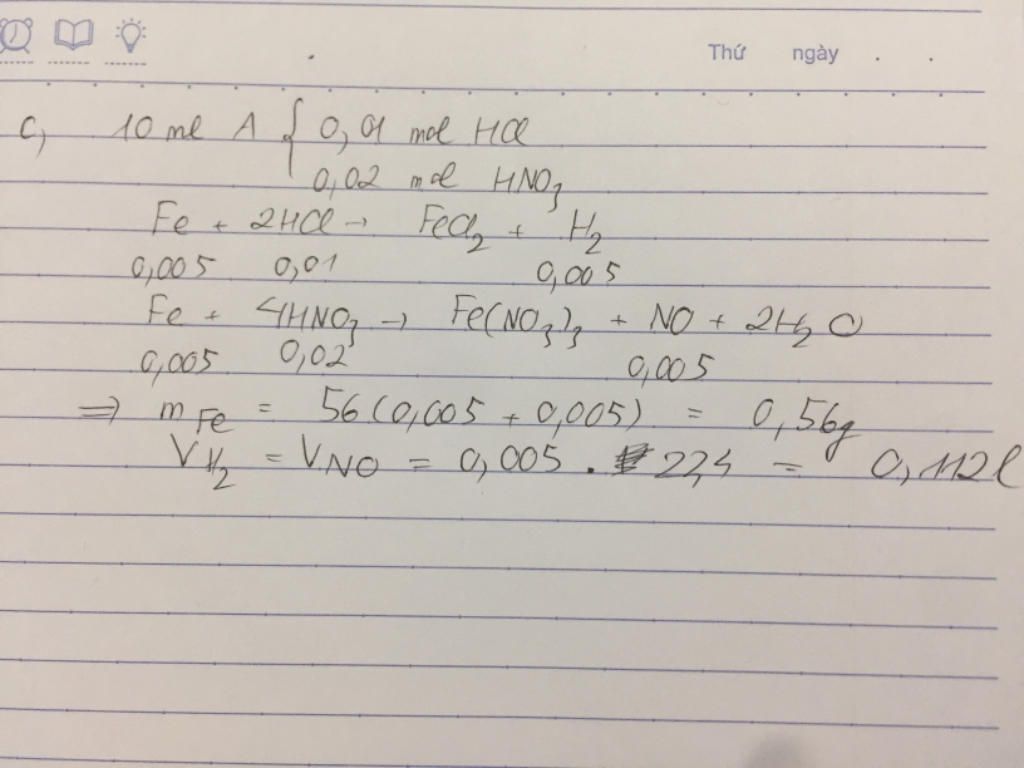 Thứ ngày . .
c, 10 ml A { 0,01 mol HCl
0,02 mol HNO₃
Fe + 2HCl → FeCl₂ + H₂
0,005 0,01 0,005
Fe + 4HNO₃ → Fe(NO₃)₃ + NO + 2H₂O
0,005 0,02 0,005
⇒ m_Fe = 56(0,005 + 0,005) = 0,56g
V_H₂ = V_NO = 0,005 . 22,4 = 0,112l